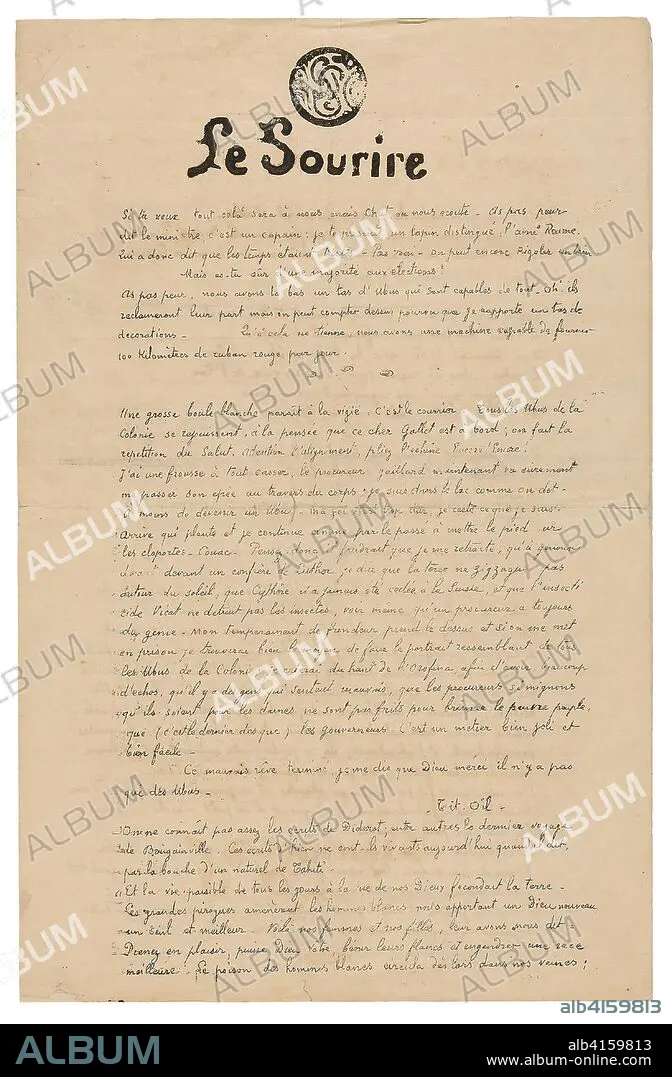 Le Sourire
Si tu veux tout cela sera à nous mais Chut on nous écoute - As pas peur
dit le ministre, c'est un copain: je te présente un lapin distingué, l'aimé
lui a donc dit que les temps étaient Pas vrai - on peut encore Rigoler
Mais es-tu sûr d'une majorité aux élections?
As pas peur, nous avons là bas un tas d'Ubus qui sont capables de tout - Oh! ils
réclameront leur part mais on peut compter dessus pourvu que je rapporte un tas de
décorations - Qu'à cela ne tienne, nous avons une machine capable de fournir
100 Kilomètres de ruban rouge par jour.
Une grosse boule blanche paraît à la vigie, C'est le courrier. Tous les Ubus de la
Colonie se rejouissent, à la pensée que ce cher Gallet est à bord; on fait la
repetition du Salut. Attention à l'alignement, pliez l'echine Encor! Encore!
J'ai une frousse à tout casser, le procureur gaillard maintenant va surement
me passer son epée au travers du corps: je suis dans le lac comme on dit
à moins de devenir un Ubu. Ma foi c'est trop dur, je reste ce que je suis.
Arrive qui plante et je continue comme par le passé à mettre le pied sur
les cloportes - Couac. Pensez donc il faudrait que je me retracte, qu'à genoux
devant un confrère de Luthor, je dise que la terre ne zigzague pas
autour du soleil, que Cythère n'a jamais été cédée à la Suisse, et que l'insecti
cide Vicat ne detruit pas les insectes, voir meme qu'un procureur a toujours
du genie - Mon temperament de frondeur prend le dessus et si on me met
en prison je trouverai bien le moyen de faire le portrait ressemblant de tous
les Ubus de la Colonie je crierai du haut de l'Orofena, afin d'avoir beaucoup
d'echos, qu'il y a des gens qui sentent mauvais, que les procureurs si mignons
qu'ils soient pour les dames ne sont pas faits pour brimer le pauvre peuple,
que (c'est le dernier des que) les gouverneurs. C'est un metier bien joli et
bien facile -
Ce mauvais rêve terminé, je me dis que Dieu merci il n'y a pas
que des Ubus -
- Tit-Oïl -
On ne connaît pas assez les écrits de Diderot; entre autres le dernier voyage
de Bougainville. Ces écrits d'hier ne sont-ils vivants aujourd'hui quand il dit,
par la bouche d'un naturel de Tahiti.
Et la vie paisible de tous les jours à la vue de nos Dieux fécondait la terre -
Les grandes pirogues amenèrent les hommes blancs nous apportant un Dieu nouveau
un seul et meilleur. Voilà nos femmes et nos filles, leur avons nous dit -
Prenez en plaisir, puisse Dieu Votre, bénir leurs flancs et engendrer une race
meilleure. Le poison des hommes blancs circula dès lors dans nos veines;
ALBUM
alb4159813
ALBUM
alb4159813
www.album-online.com